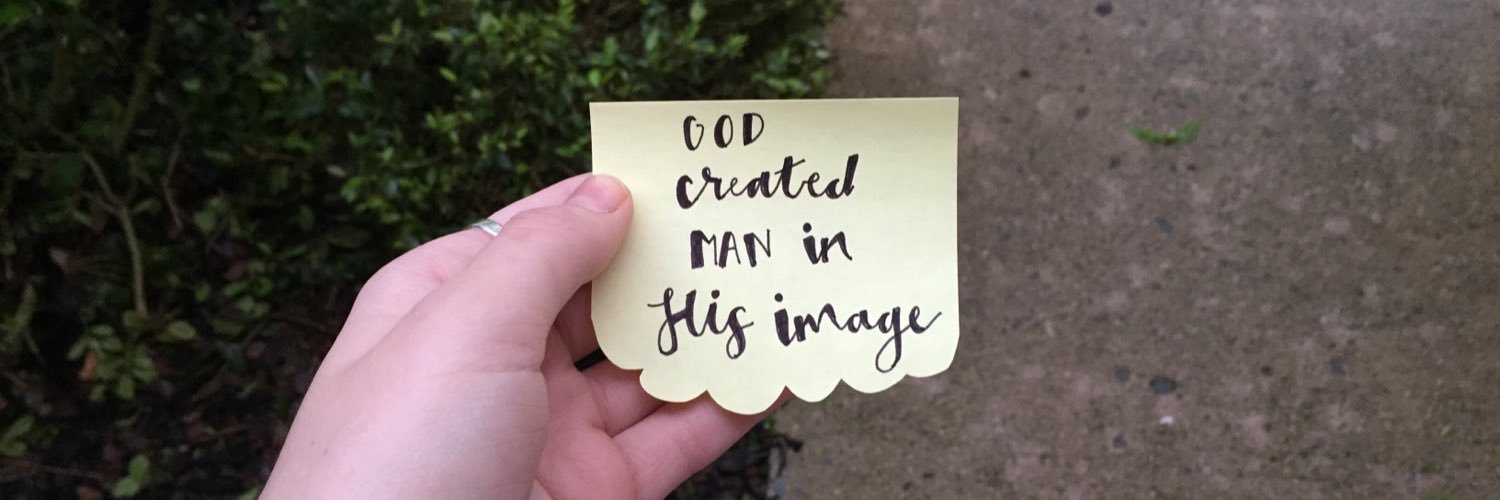 GOD
created
MAN in
His image